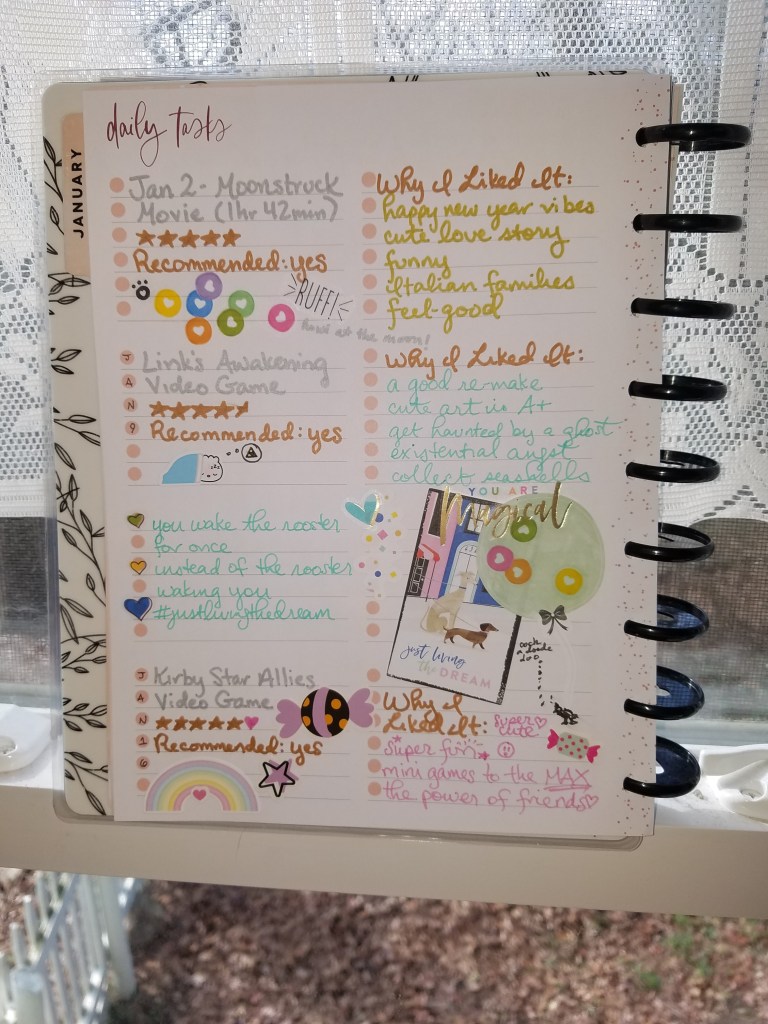 daily tasks
JANUARY
Jan 2 - Moonstruck
Movie (1hr 42min)
Recommended: yes
RUFF!
howl at the moon!
Why I Liked It:
happy new year vibes
cute love story
funny
Italian families
feel-good
JAN 9
Link's Awakening
Video Game
Recommended: yes
Why I Liked It:
a good re-make
cute art is A+
get haunted by a ghost
existential angst
collect seashells
you wake the rooster
for once
instead of the rooster
waking you
#justlivingthedream
YOU ARE
magical
just living
the DREAM
cock
a doodle
doo
JAN 16
Kirby Star Allies
Video Game
Recommended: yes
Why I
Liked It: super
cute
super fun
mini games to the MAX
the power of friends